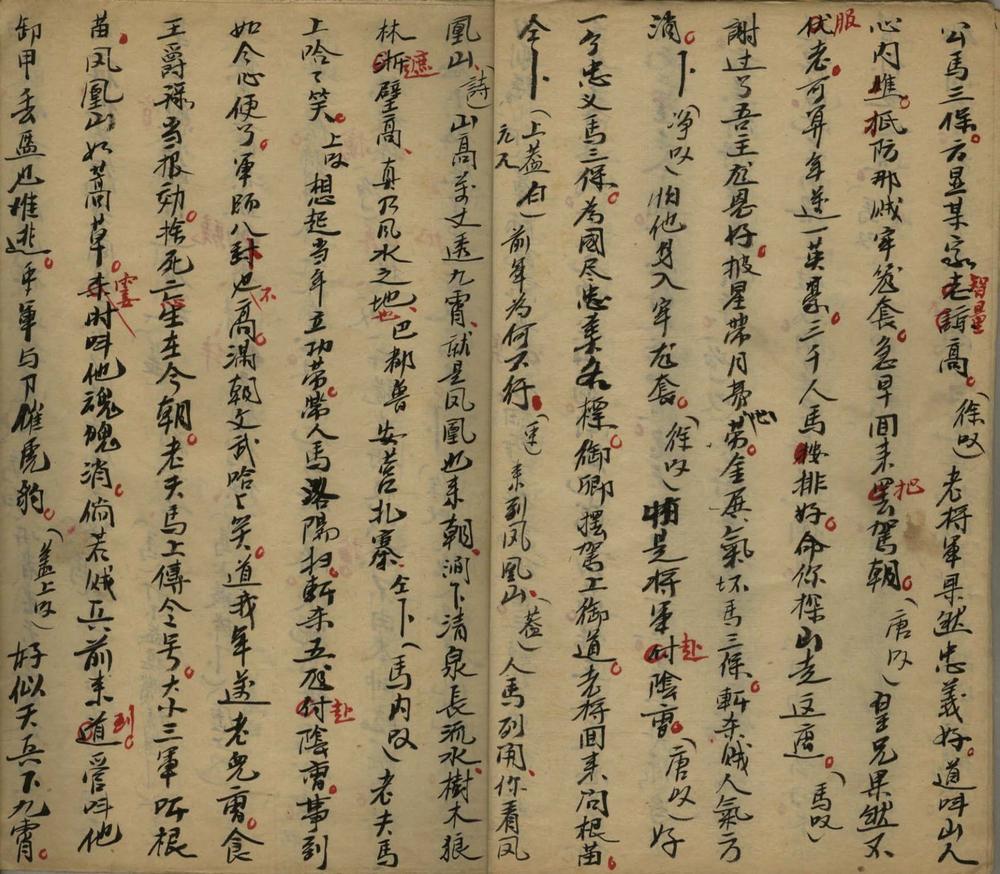 公馬三保方显某家老韜智量高。（徐叹）老将軍果然忠義好。道叫山人
心内焦。抵防那贼牢笼套。急早回来罢把駕朝。（唐叹）皇兄果然不
伏服老。可算年邁一英豪。三千人馬按排好。命你探山走这遭。（馬叹）
謝过了吾王龙恩好。披星带月费心劳。金殿氣坏馬三保。斬杀贼人氣方
消。卜（净叹）怕他身入牢龙套。（徐叹）怕是将軍付赴陰曹。（唐叹）好
一个忠义馬三保。為國尽忠美名標。御卿摆駕上御道。老将回来问根苗。
仝卜（上盖白）前軍為何不行。（白）来到凤凰山。（盖）人馬列開、你看凤
凰山、（詩）山高萬丈透九霄、就是凤凰也来朝、澗下清泉長流水、樹木狼
林浙遮壁高、真乃风水之地也、巴都魯 安营扎寨、仝卜（馬内叹）老夫馬
上哈哈笑。上叹想起当年立功劳。带人馬洛陽扫。斬杀五龙付赴陰曹。事到
如今心使了。軍師八卦也不高。满朝文武哈哈笑。道我年邁老兒曹。食
王爵祿当报効。捨死亡生在今朝。老夫馬上傳令号。大小三軍听根
苗。凤凰山如蒿草。来霎时叫他魂魄消。倘若贼兵前来道到。管叫他
卸甲丢盔也难逃。手軍与刀催虎豹。（盖上叹）好似天兵下九霄。